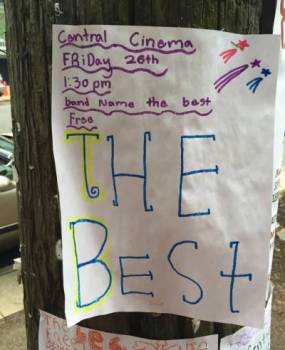 Central Cinema
FRiDay 26th
1:30 pm
band Name the best
Free
THE
BEST
THE